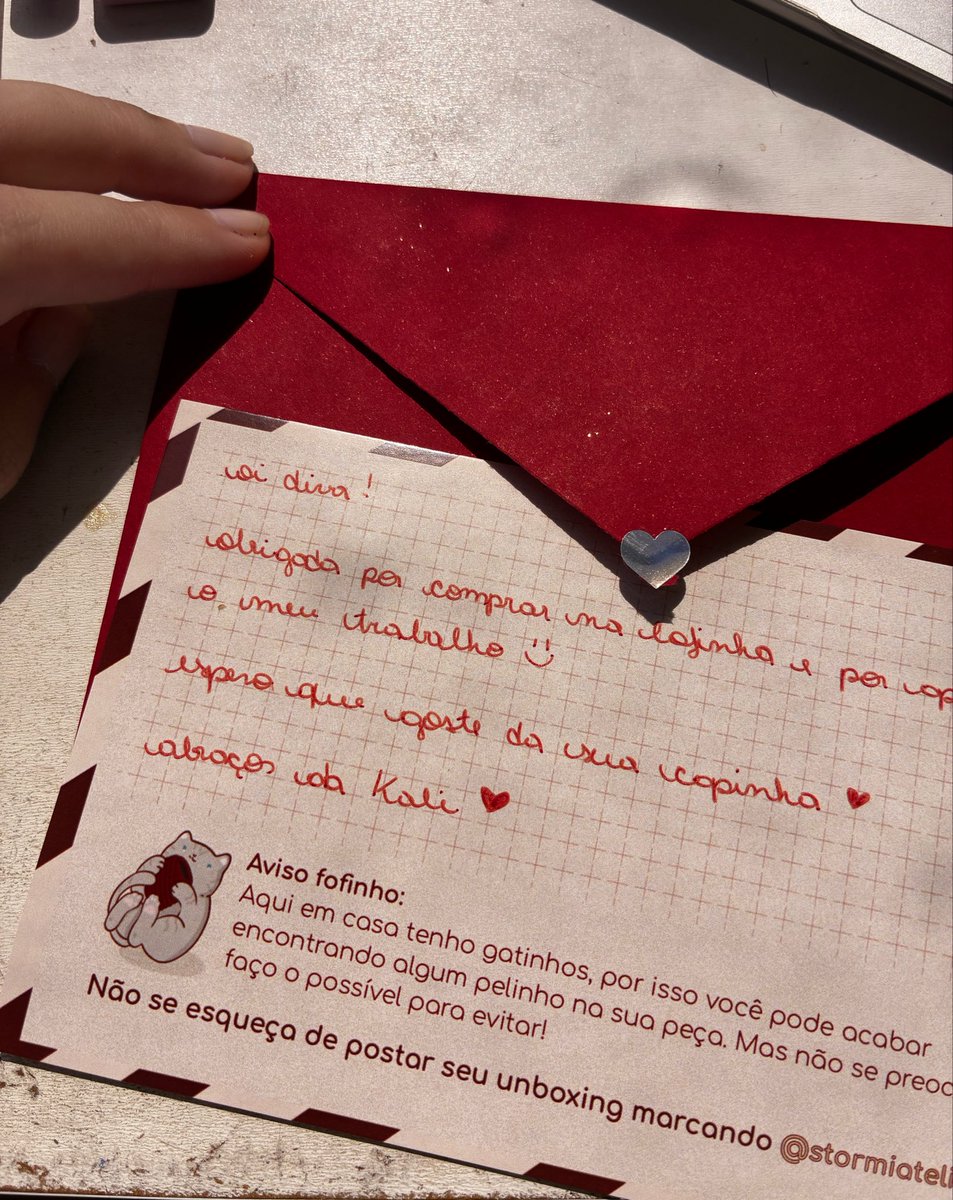 oi diva!
obrigada por comprar na lojinha e por ap
o meu trabalho :)
espero que goste da sua capinha ♥
abraços da Kali ♥
Aviso fofinho:
Aqui em casa tenho gatinhos, por isso você pode acabar
encontrando algum pelinho na sua peça. Mas não se preoc
faço o possível para evitar!
Não se esqueça de postar seu unboxing marcando @stormiateli